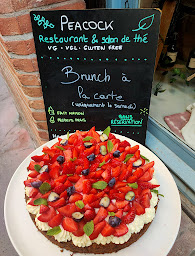 PEACOCK
Restaurant & salon de thé
VG - VGL - GLUTEN FREE
Brunch à
la carte
(uniquement le samedi)
FAIT MAISON
SANS
RÉSERVATION